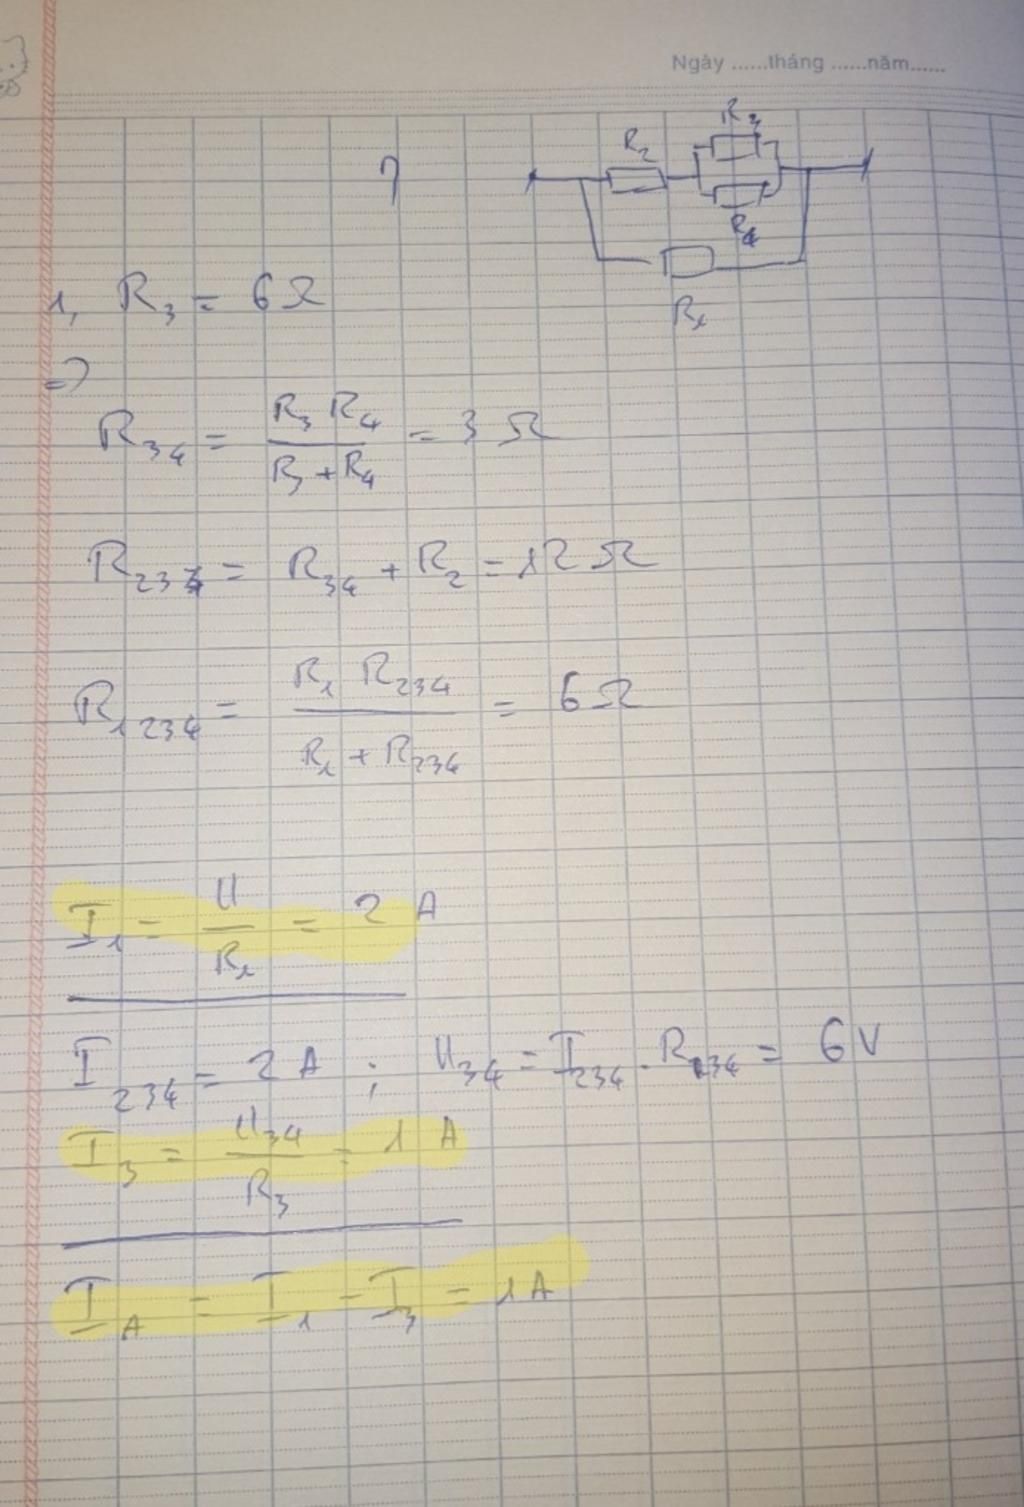 Ngày ......tháng ......năm......
R3
R2
R4
R1
1, R3 = 6Ω
=>
R34 = R3 R4 / R3 + R4 = 3 Ω
R234 = R34 + R2 = 12 Ω
R1234 = R1 R234 / R1 + R234 = 6Ω
I1 = U / R1 = 2 A
I234 = 2 A ; U34 = I234 . R34 = 6 V
I3 = U34 / R3 = 1 A
IA = I1 - I3 = 1A